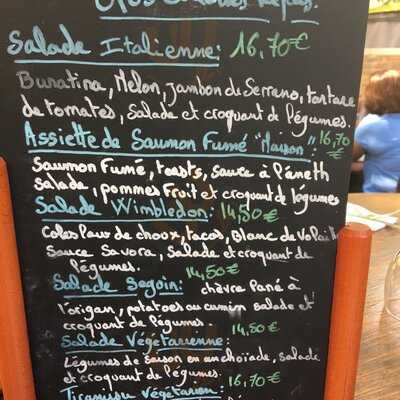 Salade Italienne: 16,70€
Buratina, Melon, jambon di Serreno, tartare
de tomates, Salade et croquant de légumes.
Assiette de Saumon Fumé "Maison": 16,70€
Saumon Fumé, toasts, sauce à l'aneth
salade, pommes Fruit et croquant de légumes
Salade Wimbledon: 14,50€
Coles laur de choux, tacos, Blanc de Volaille
Sauce Savora, Salade et croquant de
légumes. 14,50€
Salade Segoin: chèvre Pané à
l'origan, potatoes au cumin salade et
croquant de légumes. 14,50€
Salade Végétarienne:
Légumes de Saison en anchoïade, salade
et croquant de légumes. 16,70€
Tiramisu Végétarien: